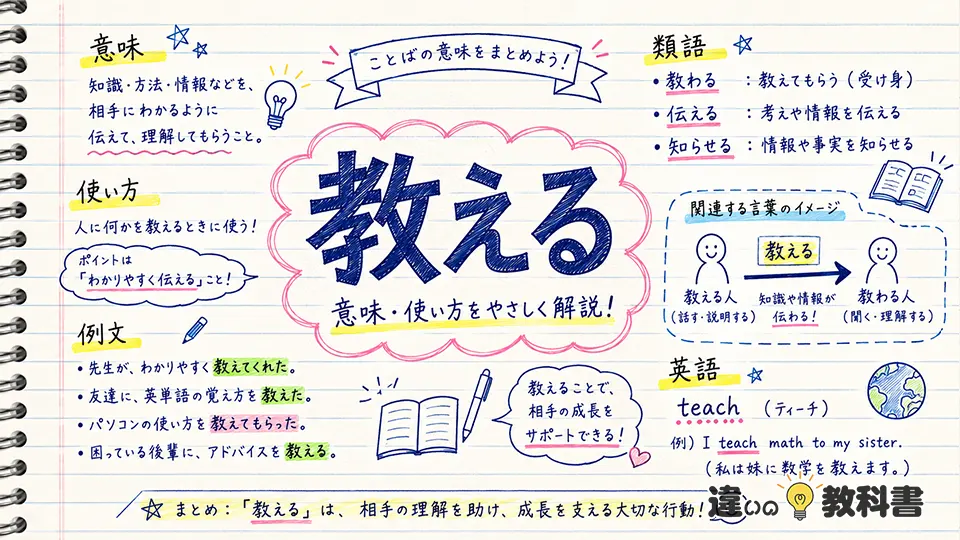 ことばの意味をまとめよう！
意味
知識・方法・情報などを、
相手にわかるように
伝えて、理解してもらうこと。
使い方
人に何かを教えるときに使う！
ポイントは
「わかりやすく伝える」こと！
例文
・先生が、わかりやすく教えてくれた。
・友達に、英単語の覚え方を教えた。
・パソコンの使い方を教えてもらった。
・困っている後輩に、アドバイスを教える。
教える
意味・使い方をやさしく解説！
教えることで、
相手の成長を
サポートできる！
類語
・教わる ：教えてもらう（受け身）
・伝える ：考えや情報を伝える
・知らせる ：情報や事実を知らせる
関連する言葉のイメージ
教える
教える人
（話す・説明する）
知識や情報が
伝わる！
教わる人
（聞く・理解する）
英語
teach （ティーチ）
例）I teach math to my sister.
（私は妹に数学を教えます。）
まとめ：「教える」は、相手の理解を助け、成長を支える大切な行動！
違いの教科書